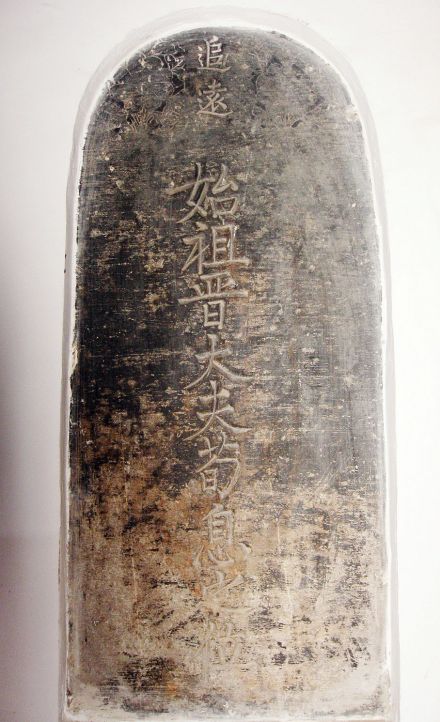 追遠
始祖晋大夫荀息之墓